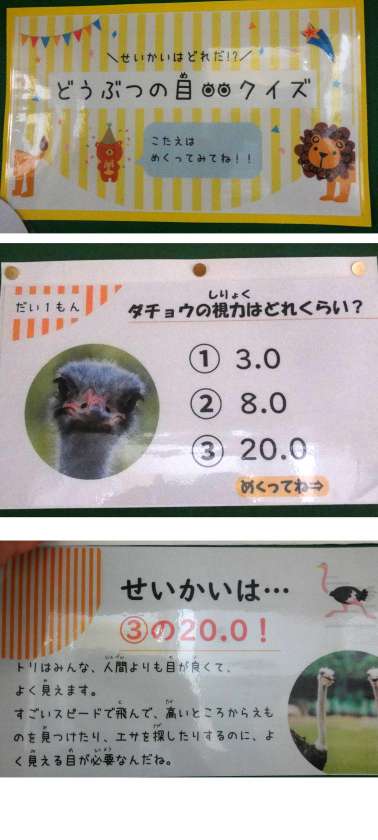 ＼せいかいはどれだ!?／
どうぶつの目クイズ
こたえは
めくってみてね！！
だい１もん
ダチョウの視力はどれくらい？
① 3.0
② 8.0
③ 20.0
めくってね⇒
せいかいは…
③の20.0！
トリはみんな、人間よりも目が良くて、
よく見えます。
すごいスピードで飛んで、高いところからえも
のを見つけたり、エサを探したりするのに、よ
く見える目が必要なんだね。